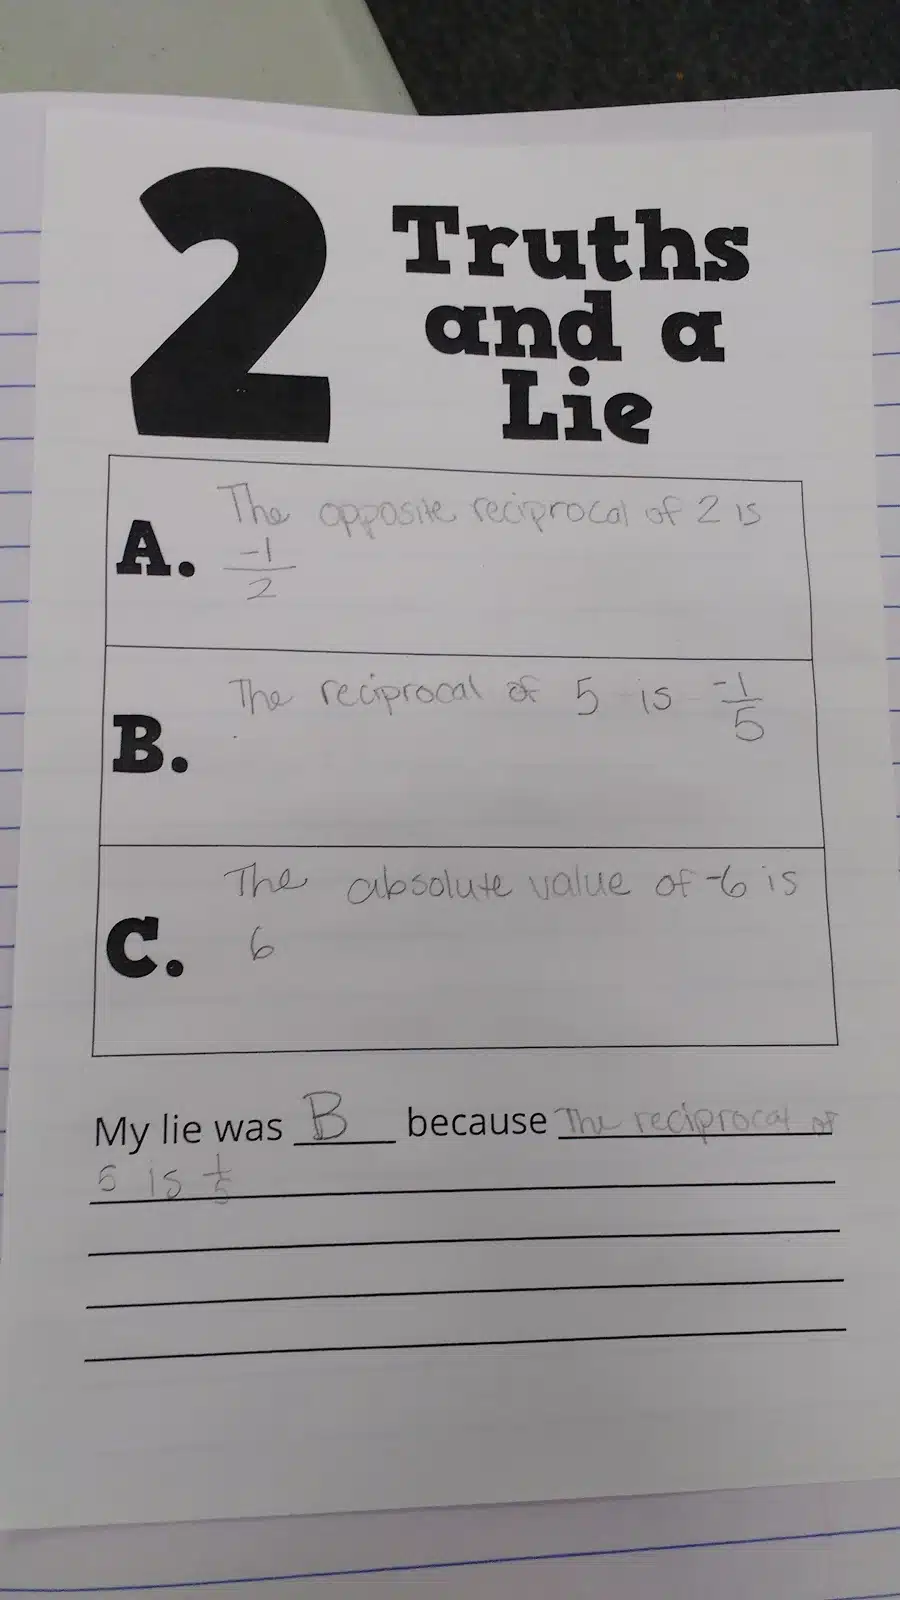 2 Truths
and a
Lie
A. The opposite reciprocal of 2 is
-1
2
B. The reciprocal of 5 is -1/5
C. The absolute value of -6 is
6
My lie was B because The reciprocal of
5 is 1/5